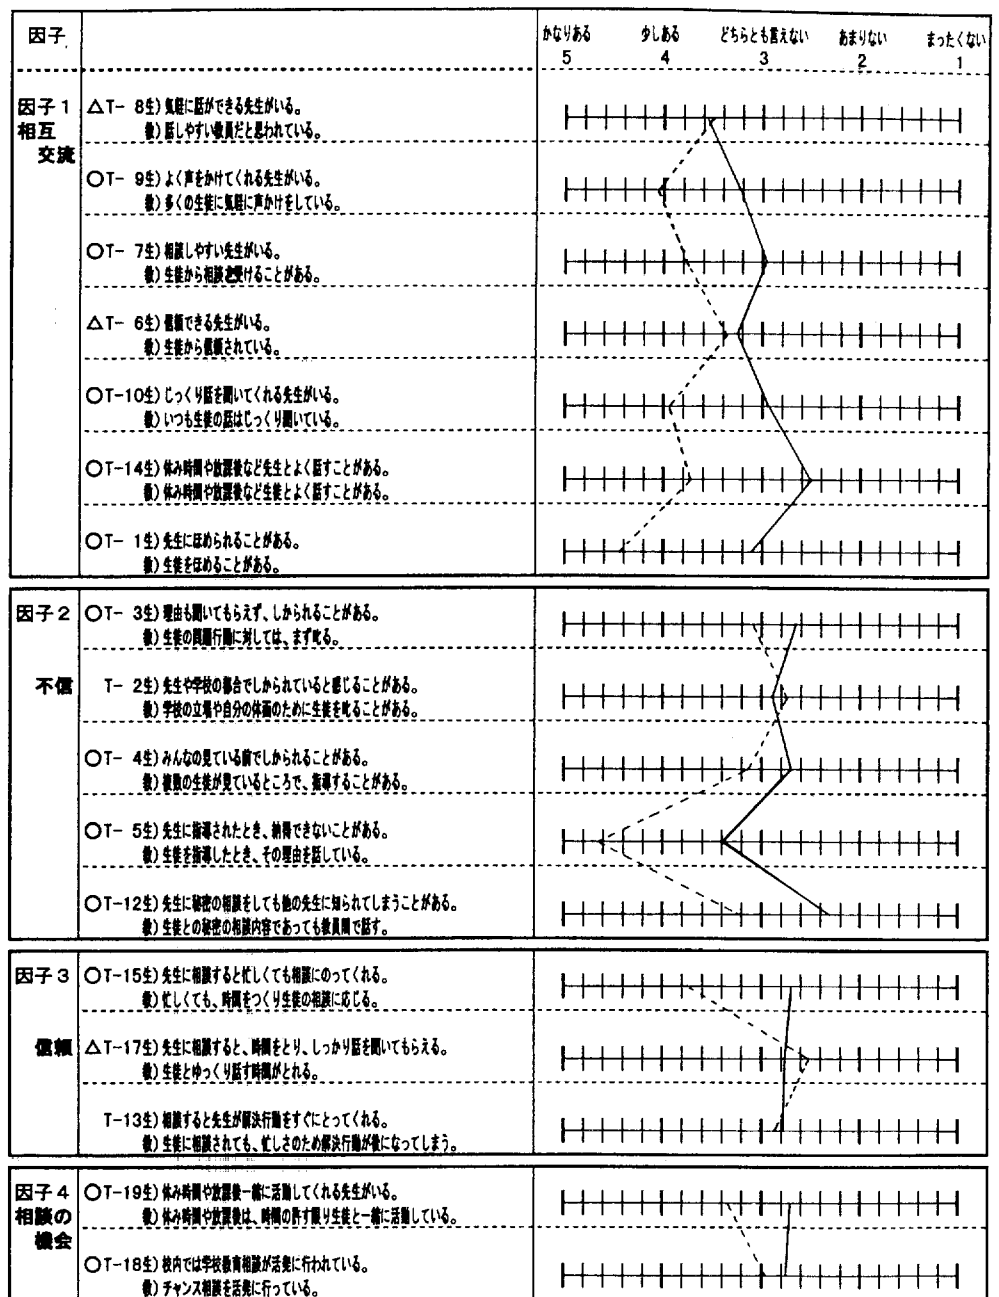 因子
かなりある 少しある どちらとも言えない あまりない まったくない
5 4 3 2 1
因子1 △T- 8生) 気軽に話ができる先生がいる。
相互 教) 話しやすい教員だと思われている。
交流
○T- 9生) よく声をかけてくれる先生がいる。
教) 多くの生徒に気軽に声かけをしている。
○T- 7生) 相談しやすい先生がいる。
教) 生徒から相談を受けることがある。
△T- 6生) 信頼できる先生がいる。
教) 生徒から信頼されている。
○T-10生) じっくり話を聞いてくれる先生がいる。
教) いつも生徒の話はじっくり聞いている。
○T-14生) 休み時間や放課後など先生とよく話すことがある。
教) 休み時間や放課後など生徒とよく話すことがある。
○T- 1生) 先生にほめられることがある。
教) 生徒をほめることがある。
因子2 ○T- 3生) 理由も聞いてもらえず、しかられることがある。
教) 生徒の問題行動に対しては、まず叱る。
不信 T- 2生) 先生や学校の都合でしかられていると感じることがある。
教) 学校の立場や自分の体面のために生徒を叱ることがある。
○T- 4生) みんなの見ている前でしかられることがある。
教) 複数の生徒が見ているところで、指導することがある。
○T- 5生) 先生に指導されたとき、納得できないことがある。
教) 生徒を指導したとき、その理由を話している。
○T-12生) 先生に秘密の相談をしても他の先生に知られてしまうことがある。
教) 生徒との秘密の相談内容であっても教員間で話す。
因子3 ○T-15生) 先生に相談すると忙しくても相談にのってくれる。
教) 忙しくても、時間をつくり生徒の相談に応じる。
信頼 △T-17生) 先生に相談すると、時間をとり、しっかり話を聞いてもらえる。
教) 生徒とゆっくり話す時間がとれる。
T-13生) 相談すると先生が解決行動をすぐにとってくれる。
教) 生徒に相談されても、忙しさのため解決行動が後になってしまう。
因子4 ○T-19生) 休み時間や放課後一緒に活動してくれる先生がいる。
相談の 教) 休み時間や放課後は、時間の許す限り生徒と一緒に活動している。
機会
○T-18生) 校内では学校教育相談が活発に行われている。
教) チャンス相談を活発に行っている。